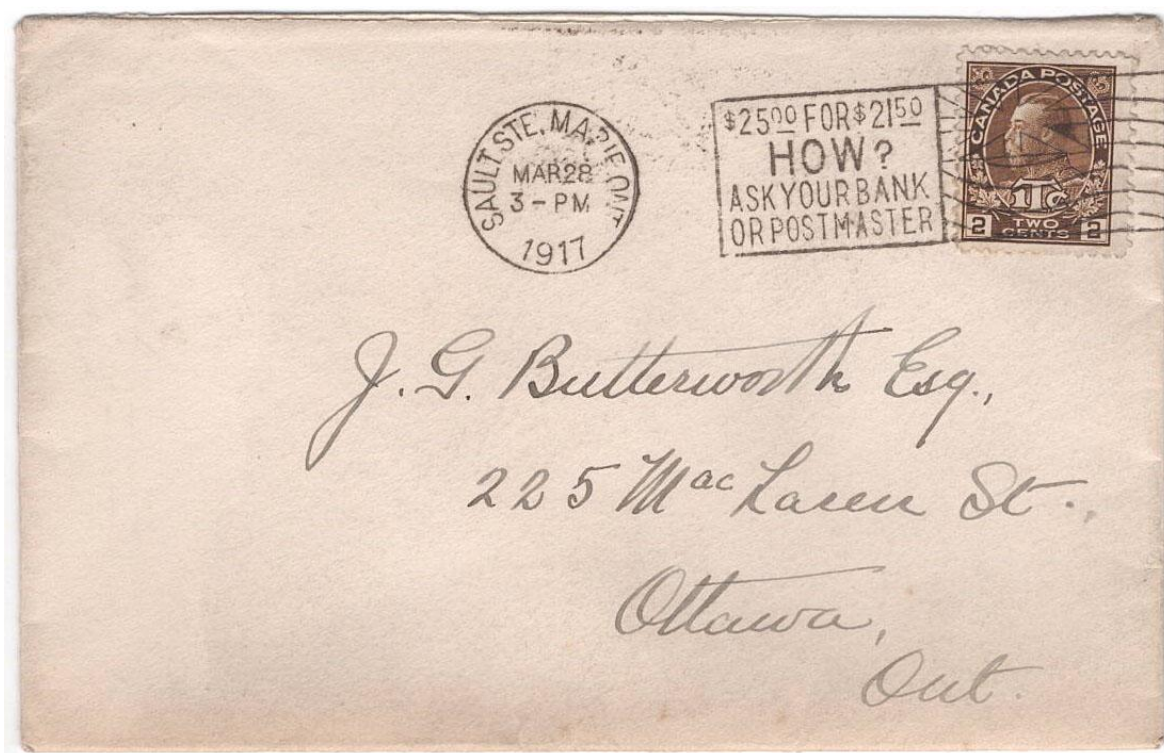 SAULT STE. MARIE ONT
MAR 28
3 - PM
1917
$25.00 FOR $21.50
HOW?
ASK YOUR BANK
OR POSTMASTER
CANADA POSTAGE
1Tc
2 TWO CENTS 2
J. G. Butterworth Esq.,
225 MacLaren St.,
Ottawa,
Ont.